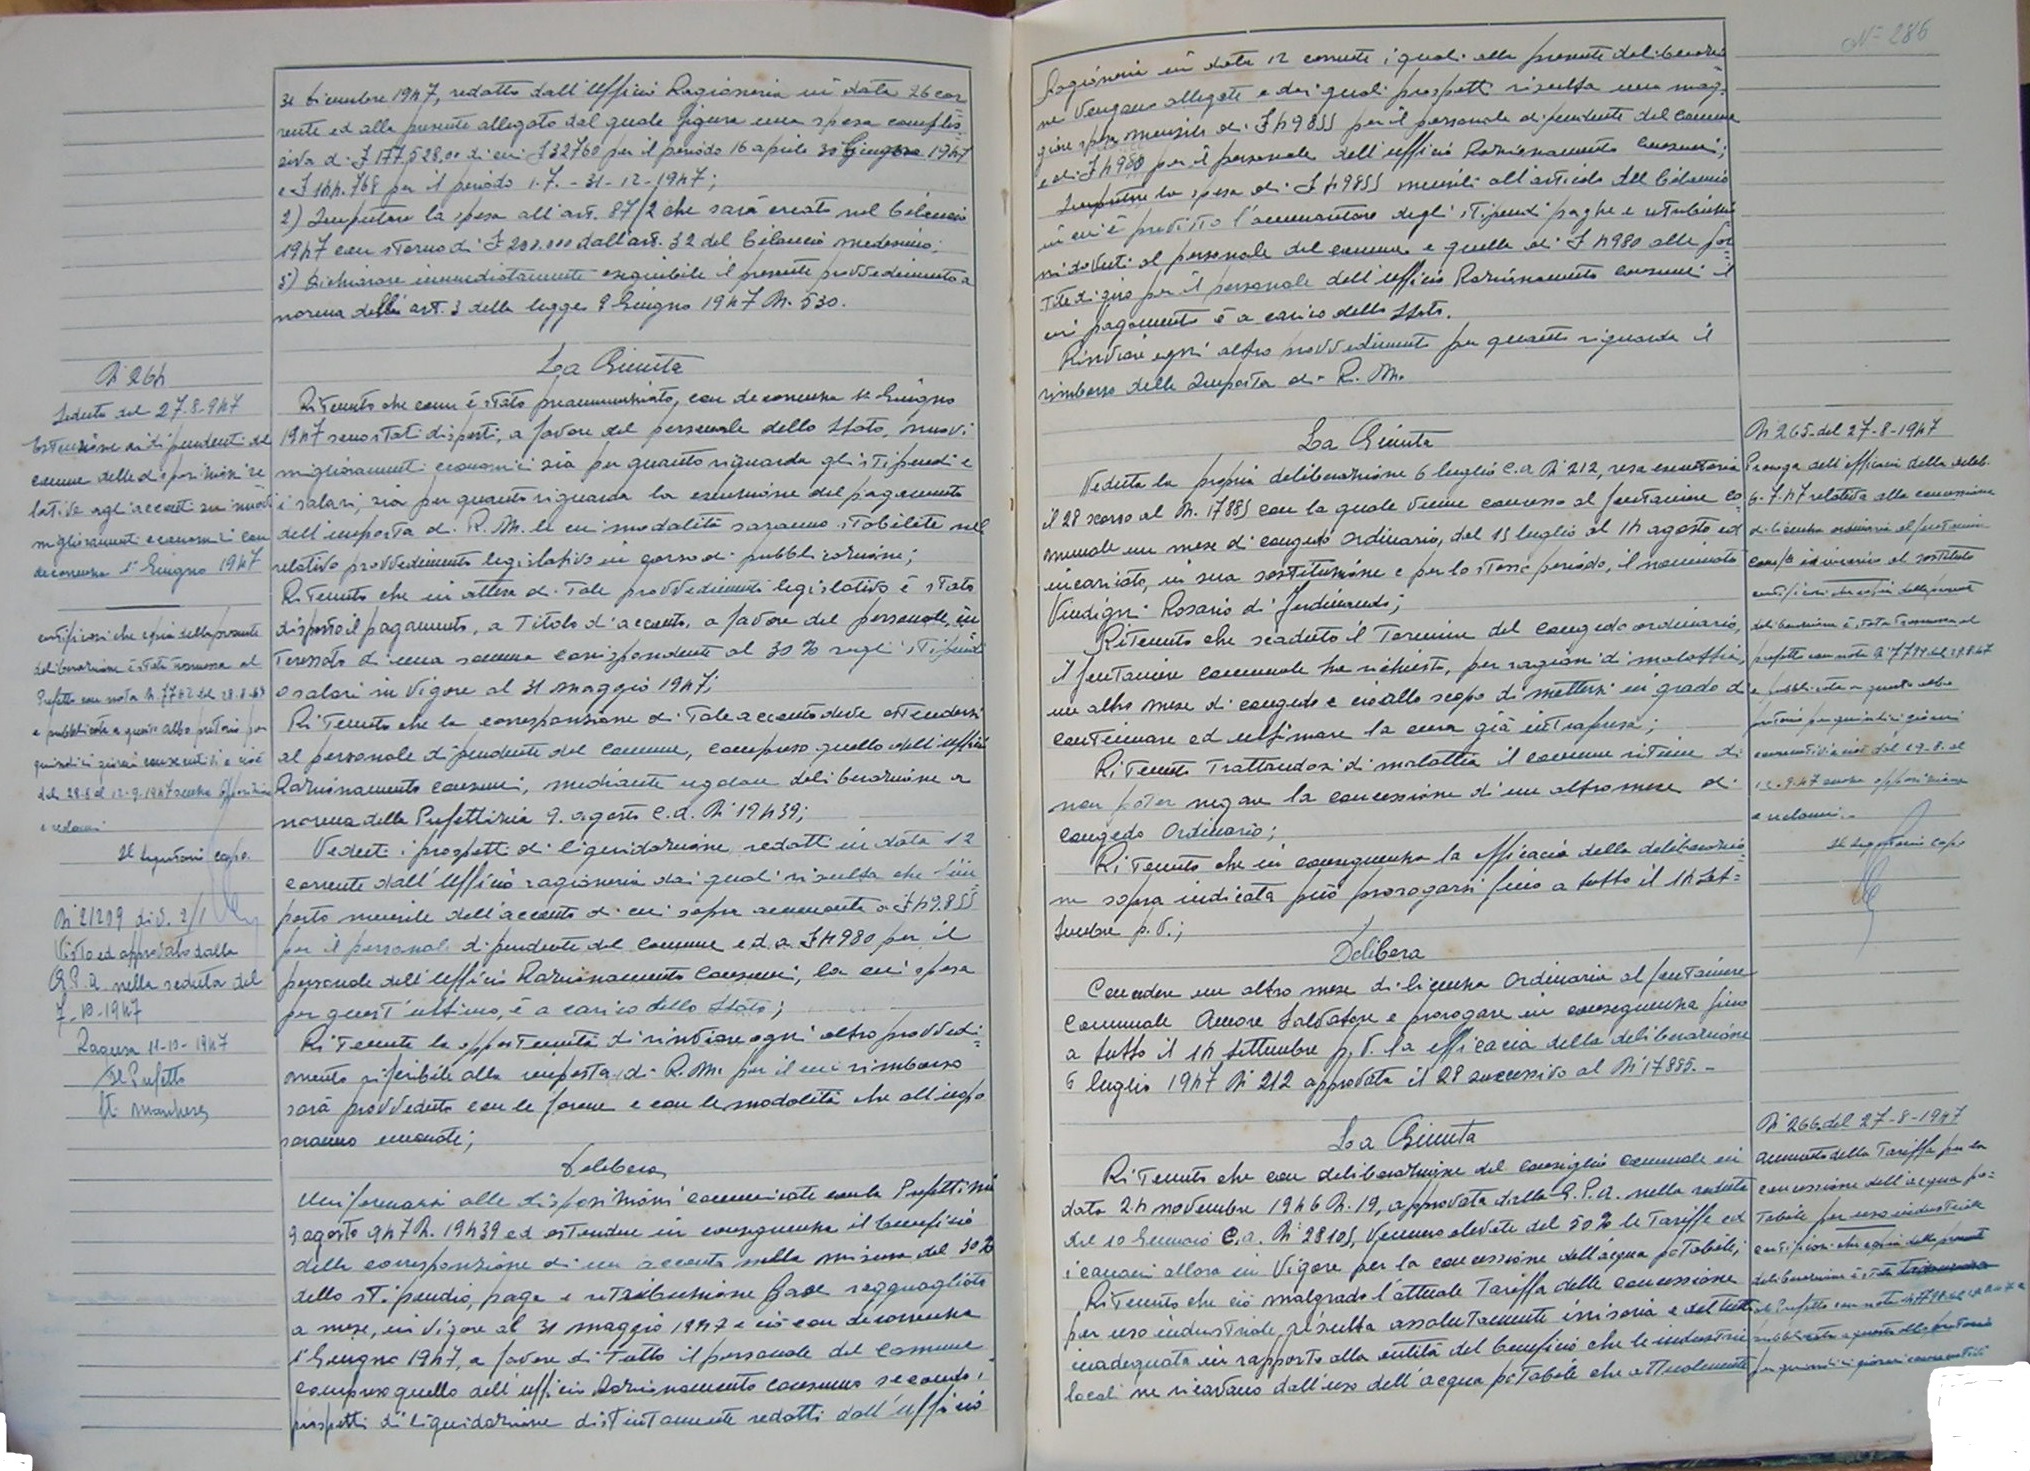 31 dicembre 1947, redatto dall'Ufficio Ragioneria in data 26 cor=
rente ed alla presente allegato dal quale figura una spesa comples=
siva di £ 177.528,00 di cui £ 32760 per il periodo 16 aprile 30 Giugno 1947
e £ 144.768 per il periodo 1-7.-31-12-1947;
2) Imputare la spesa all'art. 87/2 che sarà creato nel bilancio
1947 con storno di £ 200.000 dall'art. 32 del bilancio medesimo;
3) Dichiarare immediatamente eseguibile il presente provvedimento a
norma dell'art. 3 della legge 9 Giugno 1947 N. 530.
N° 264
Seduta del 27-8-947
Estensione ai dipendenti del
comune delle disposizioni re
lative agli acconti sui nuovi
miglioramenti economici con
decorrenza 1° Giugno 1947
certificasi che copia della presente
deliberazione è stata trasmessa al
Prefetto con nota N. 7762 del 28-8-47
e pubblicata a questo albo pretorio per
quindici giorni consecutivi e cioè
dal 28-8 al 12-9-1947 senza opposizioni
e reclami
Il Segretario Capo
N° 21209 div. 2/1
Visto ed approvato dalla
G.P.A. nella seduta del
7-10-1947
Ragusa 11-10-1947
Il Prefetto
La Giunta
Ritenuto che come è stato preannunziato, con decorrenza 1° Giugno
1947 sono stati disposti, a favore del personale dello Stato, nuovi
miglioramenti economici sia per quanto riguarda gli stipendi e
i salari, sia per quanto riguarda la esenzione del pagamento
dell'imposta di R.M. le cui modalità saranno stabilite nel
relativo provvedimento legislativo in corso di pubblicazione;
Ritenuto che in attesa di tale provvedimenti legislativo è stato
disposto il pagamento, a titolo di acconto, a favore del personale in
teressato di una somma corrispondente al 30% sugli stipendi
o salari in vigore al 31 maggio 1947;
Ritenuto che la corresponsione di tale acconto deve estendersi
al personale dipendente del comune, compreso quello dell'ufficio
Razionamento consumi, mediante regolare deliberazione a
norma della Prefettizia 9 agosto c.a. N° 19439;
Veduti i prospetti di liquidazione redatti in data 12
corrente dall'Ufficio ragioneria dai quali risulta che l'im
porto mensile dell'acconto di cui sopra ammonta a £ 49.855
per il personale dipendente del comune ed a £ 4980 per il
personale dell'Ufficio Razionamento Consumi, la cui spesa
per quest'ultimo, è a carico dello Stato;
Ritenuta la opportunità di rinviare ogni altro provvedi=
mento riferibile alla imposta di R.M. per il cui rimborso
sarà provveduto con le forme e con le modalità che all'uopo
saranno emanate;
Delibera
Uniformarsi alle disposizioni comunicate con la Prefettizia
9 agosto 947 N. 19439 ed estendere in conseguenza il beneficio
della corresponsione di un acconto nella misura del 30%
dello stipendio, paga e retribuzione base ragguagliata
a mese, in vigore al 31 maggio 1947 e ciò con decorrenza
1° Giugno 1947, a favore di tutto il personale del Comune
compreso quello dell'ufficio Razionamento consumo secondo i
prospetti di liquidazione distintamente redatti dall'Ufficio
N° 286
Ragioneria in data 12 corrente i quali alla presente deliberazio
ne vengono allegati e dai quali prospetti risulta una mag=
giore spesa mensile di £ 49855 per il personale dipendente del comune
e di £ 4980 per il personale dell'ufficio Razionamento Consumi;
Imputare la spesa di £ 49855 mensili all'articolo del bilancio
in cui è previsto l'ammontare degli stipendi paghe e retribuzio
ni dovuti al personale del comune e quella di £ 4980 alle par
tite di giro per il personale dell'Ufficio Razionamento consumi il
cui pagamento è a carico dello Stato.
Rinviare ogni altro provvedimento per quanto riguarda il
rimborso della Imposta di R.M.
La Giunta
Veduta la propria deliberazione 6 luglio c.a. N° 212, resa esecutoria
il 28 scorso al N. 17885 con la quale venne concesso al fontaniere co
munale un mese di congedo ordinario, dal 15 luglio al 14 agosto ed
incaricato, in sua sostituzione e per lo stesso periodo, il nominato
Vindigni Rosario di Ferdinando;
Ritenuto che scaduto il termine del congedo ordinario,
il fontaniere comunale ha richiesto, per ragioni di malattia,
un altro mese di congedo e ciò allo scopo di mettersi in grado di
continuare ed ultimare la cura già intrapresa;
Ritenuto trattandosi di malattia il comune ritiene di
non poter negare la concessione di un altro mese di
congedo ordinario;
Ritenuto che in conseguenza la efficacia della deliberazio=
ne sopra indicata può prorogarsi fino a tutto il 14 Set=
tembre p.v.;
Delibera
Concedere un altro mese di licenza ordinaria al fontaniere
Comunale Amore Salvatore e prorogare in conseguenza fino
a tutto il 14 Settembre p.v. la efficacia della deliberazione
6 luglio 1947 N° 212 approvata il 28 successivo al N° 17885.-
La Giunta
Ritenuto che con deliberazione del Consiglio comunale in
data 24 novembre 1946 N. 19, approvata dalla G.P.A. nella seduta
del 10 Gennaio c.a. N° 28105, vennero elevate del 50% le tariffe ed
i canoni allora in vigore per la concessione dell'acqua potabile;
Ritenuto che ciò malgrado l'attuale tariffa delle concessione
per uso industriale risulta assolutamente irrisoria e del tutto
inadeguata in rapporto alla entità del beneficio che le industrie
locali ne ricavano dall'uso dell'acqua potabile che attualmente
N° 265 del 27-8-1947
Proroga dell'efficacia della delib.
6-7-47 relativa alla concessione
di licenza ordinaria al fontaniere
com/le incarico al sostituto
certificasi che copia della presente
deliberazione è stata trasmessa al
prefetto con nota N° del 29.8.47
e pubblicata a questo albo
pretorio per quindici giorni
consecutivi e cioè dal 29-8 al
12-9-47 senza opposizione
e reclami.-
Il Segretario Capo
N° 266 del 27-8-1947
Aumento della tariffa per la
concessione dell'acqua po=
tabile per uso industriale
certificasi che copia della presente
deliberazione è stata trasmessa
al Prefetto con nota
pubblicata a questo albo pretorio
per quindici giorni consecutivi